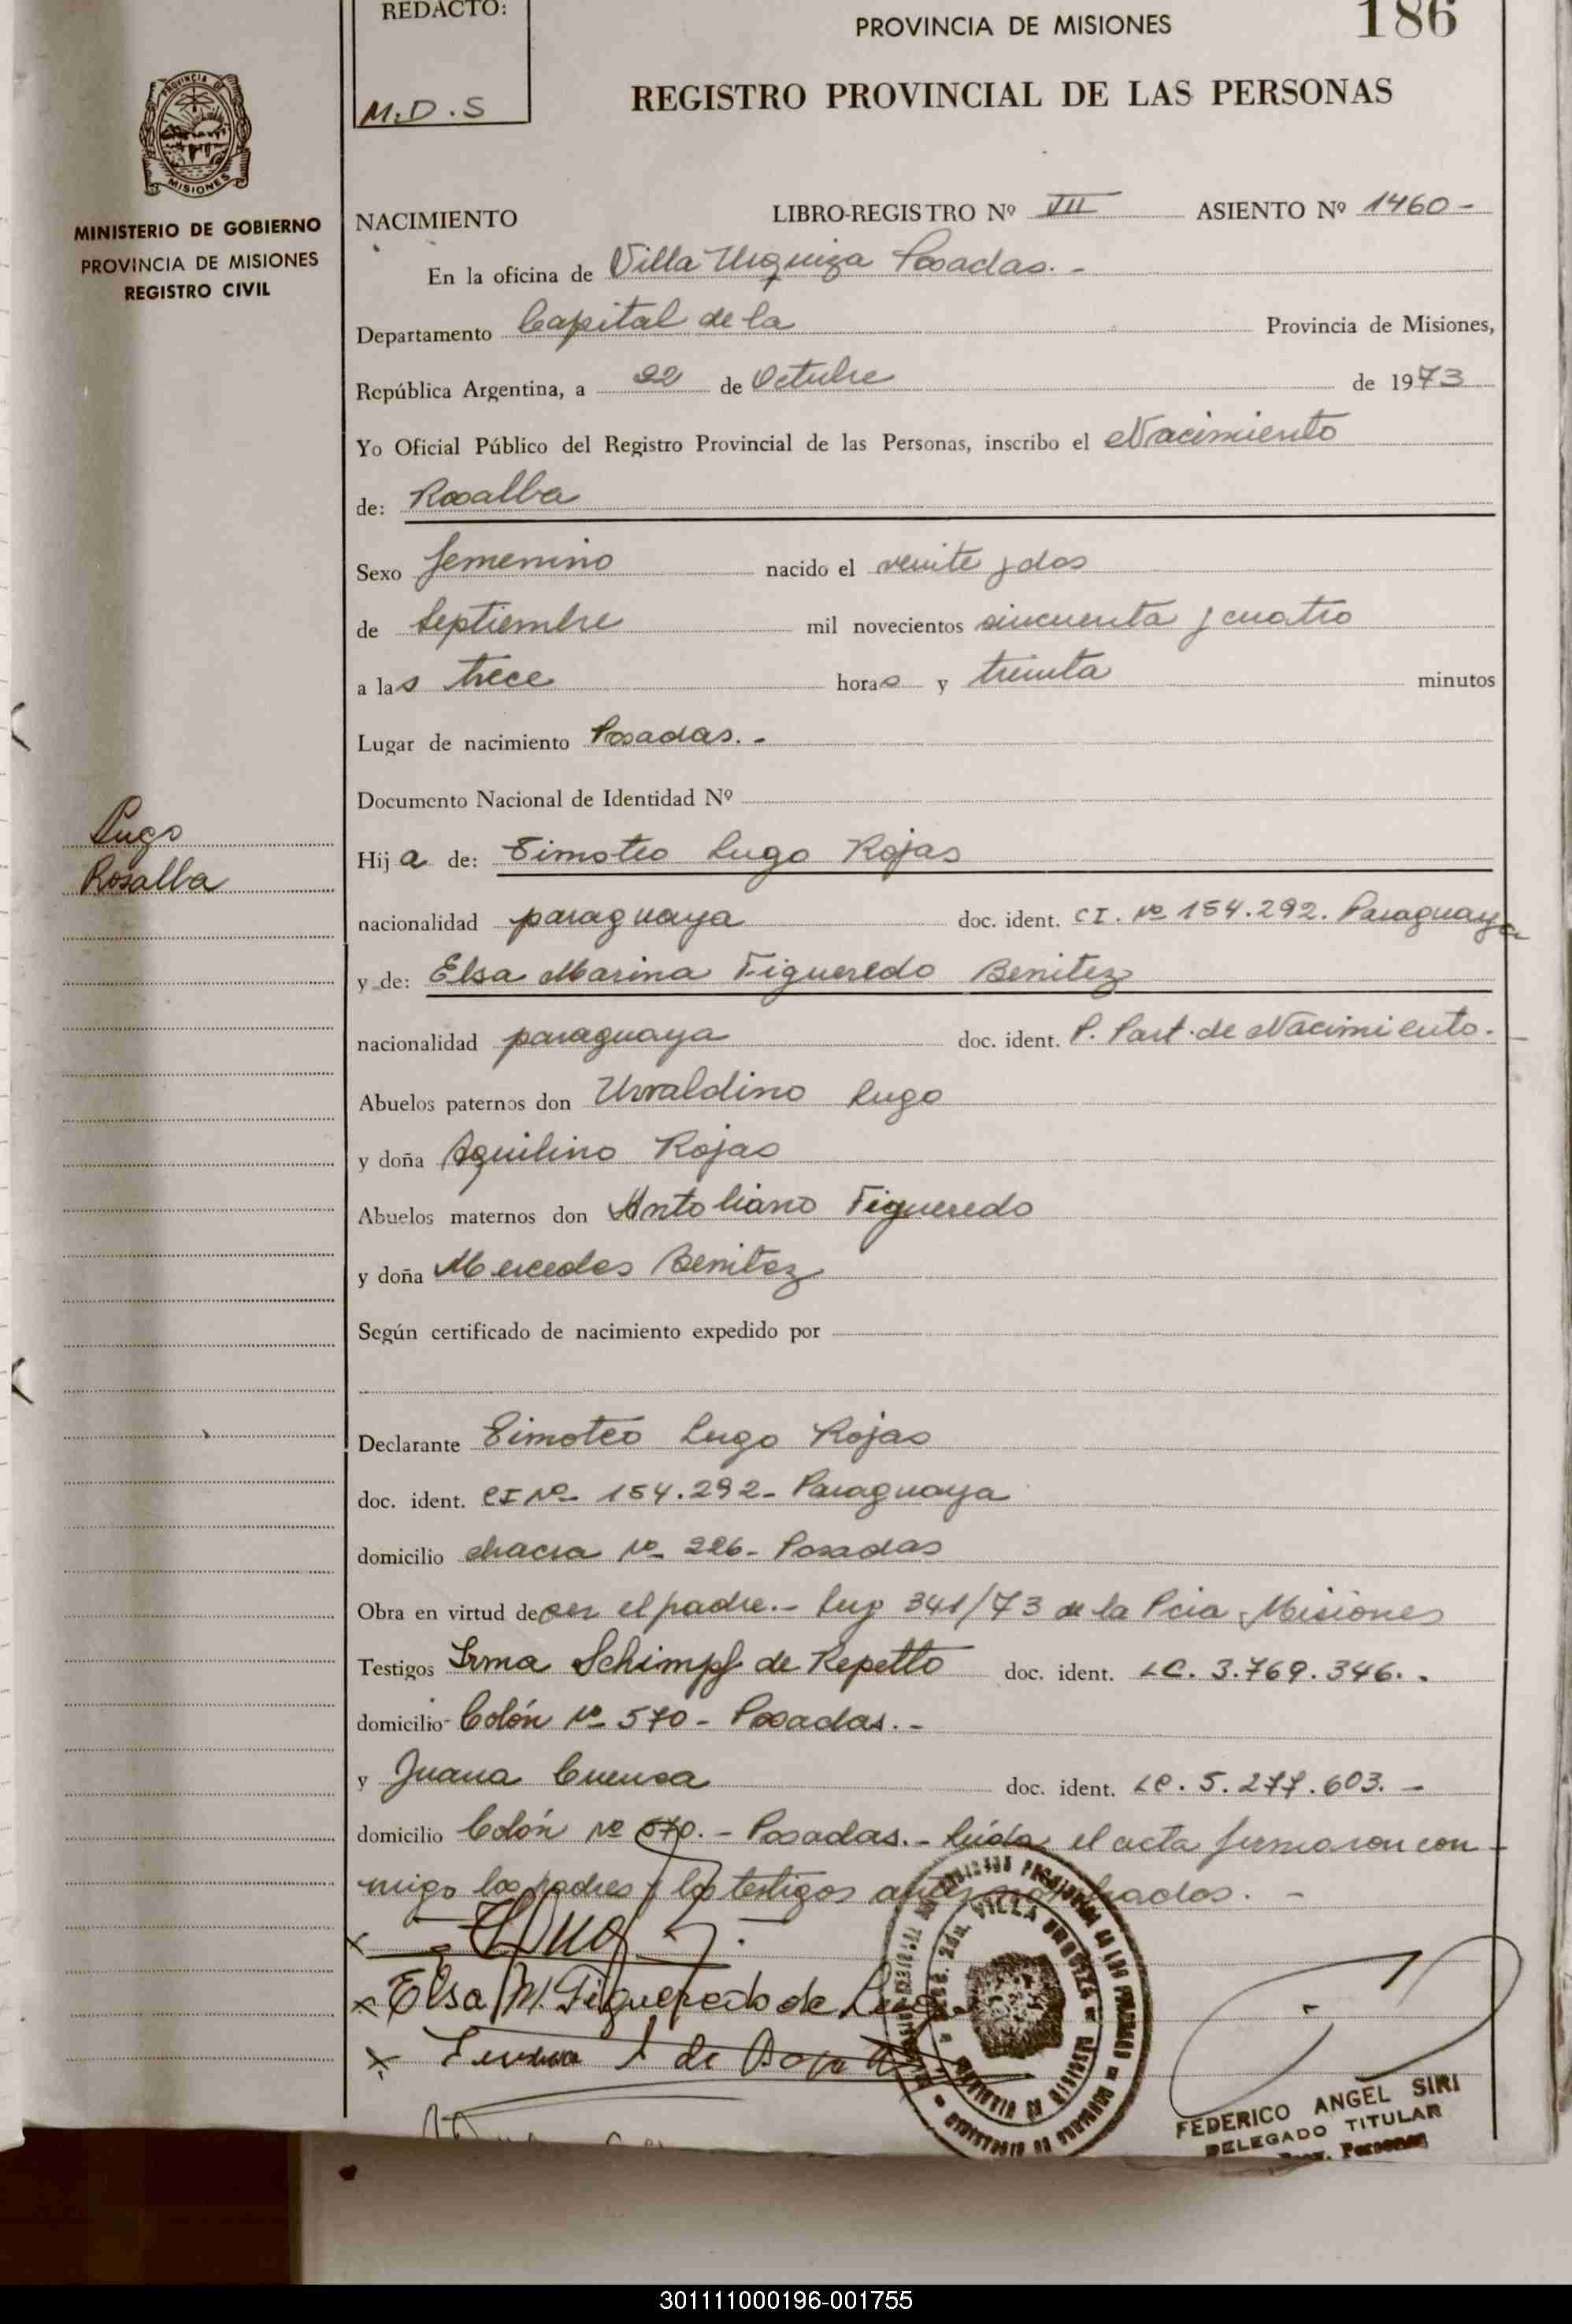 REDACTO:
M.D.S
PROVINCIA DE MISIONES
186
REGISTRO PROVINCIAL DE LAS PERSONAS
MISIONES
MINISTERIO DE GOBIERNO
PROVINCIA DE MISIONES
REGISTRO CIVIL
NACIMIENTO LIBRO-REGISTRO Nº VII ASIENTO Nº 1460-
En la oficina de Villa Urquiza Posadas.-
Departamento Capital de la Provincia de Misiones,
República Argentina, a 22 de Octubre de 1973
Yo Oficial Público del Registro Provincial de las Personas, inscribo el Nacimiento
de: Rosalba
Sexo femenino nacido el veinte y dos
de Septiembre mil novecientos cincuenta y cuatro
a las trece horas y treinta minutos
Lugar de nacimiento Posadas.-
Documento Nacional de Identidad Nº
Lugo
Rosalba
Hija de: Timoteo Lugo Rojas
nacionalidad paraguaya doc. ident. CI. Nº 154.292. Paraguaya
y de: Elsa Marina Figueredo Benitez
nacionalidad paraguaya doc. ident. P. Part. de Nacimiento.-
Abuelos paternos don Uvaldino Lugo
y doña Aquilino Rojas
Abuelos maternos don Antoliano Figueredo
y doña Mercedes Benitez
Según certificado de nacimiento expedido por
Declarante Timoteo Lugo Rojas
doc. ident. CI Nº 154.292- Paraguaya
domicilio chacra Nº 226- Posadas
Obra en virtud de ser el padre.- 341/73 de la Pcia Misiones
Testigos Irma Schimpf de Repetto doc. ident. LC. 3.769.346.-
domicilio Colón Nº 570- Posadas.-
y Juana Cuenca doc. ident. LC. 5.277.603.-
domicilio Colón Nº 570.- Posadas.- Leída el acta firmaron con-
migo los padres y los testigos antes nombrados.-
x
x Elsa M. Figueredo de Lugo
x
VILLA URQUIZA
FEDERICO ANGEL SIRI
DELEGADO TITULAR
Personas
301111000196-001755